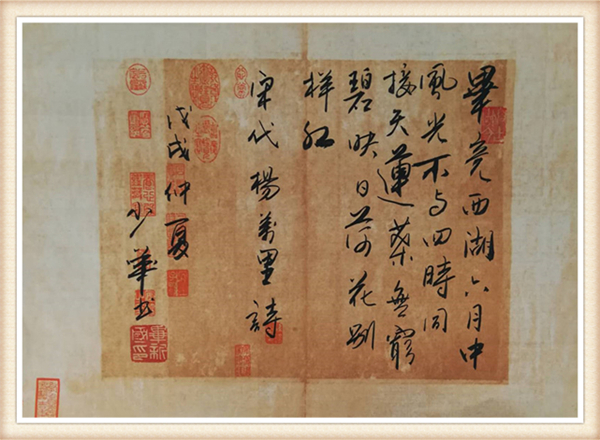 畢竟西湖六月中
風光不与四時同
接天蓮葉無窮
碧映日荷花别
样红
宋代楊萬里詩
戊戌仲夏
少華书